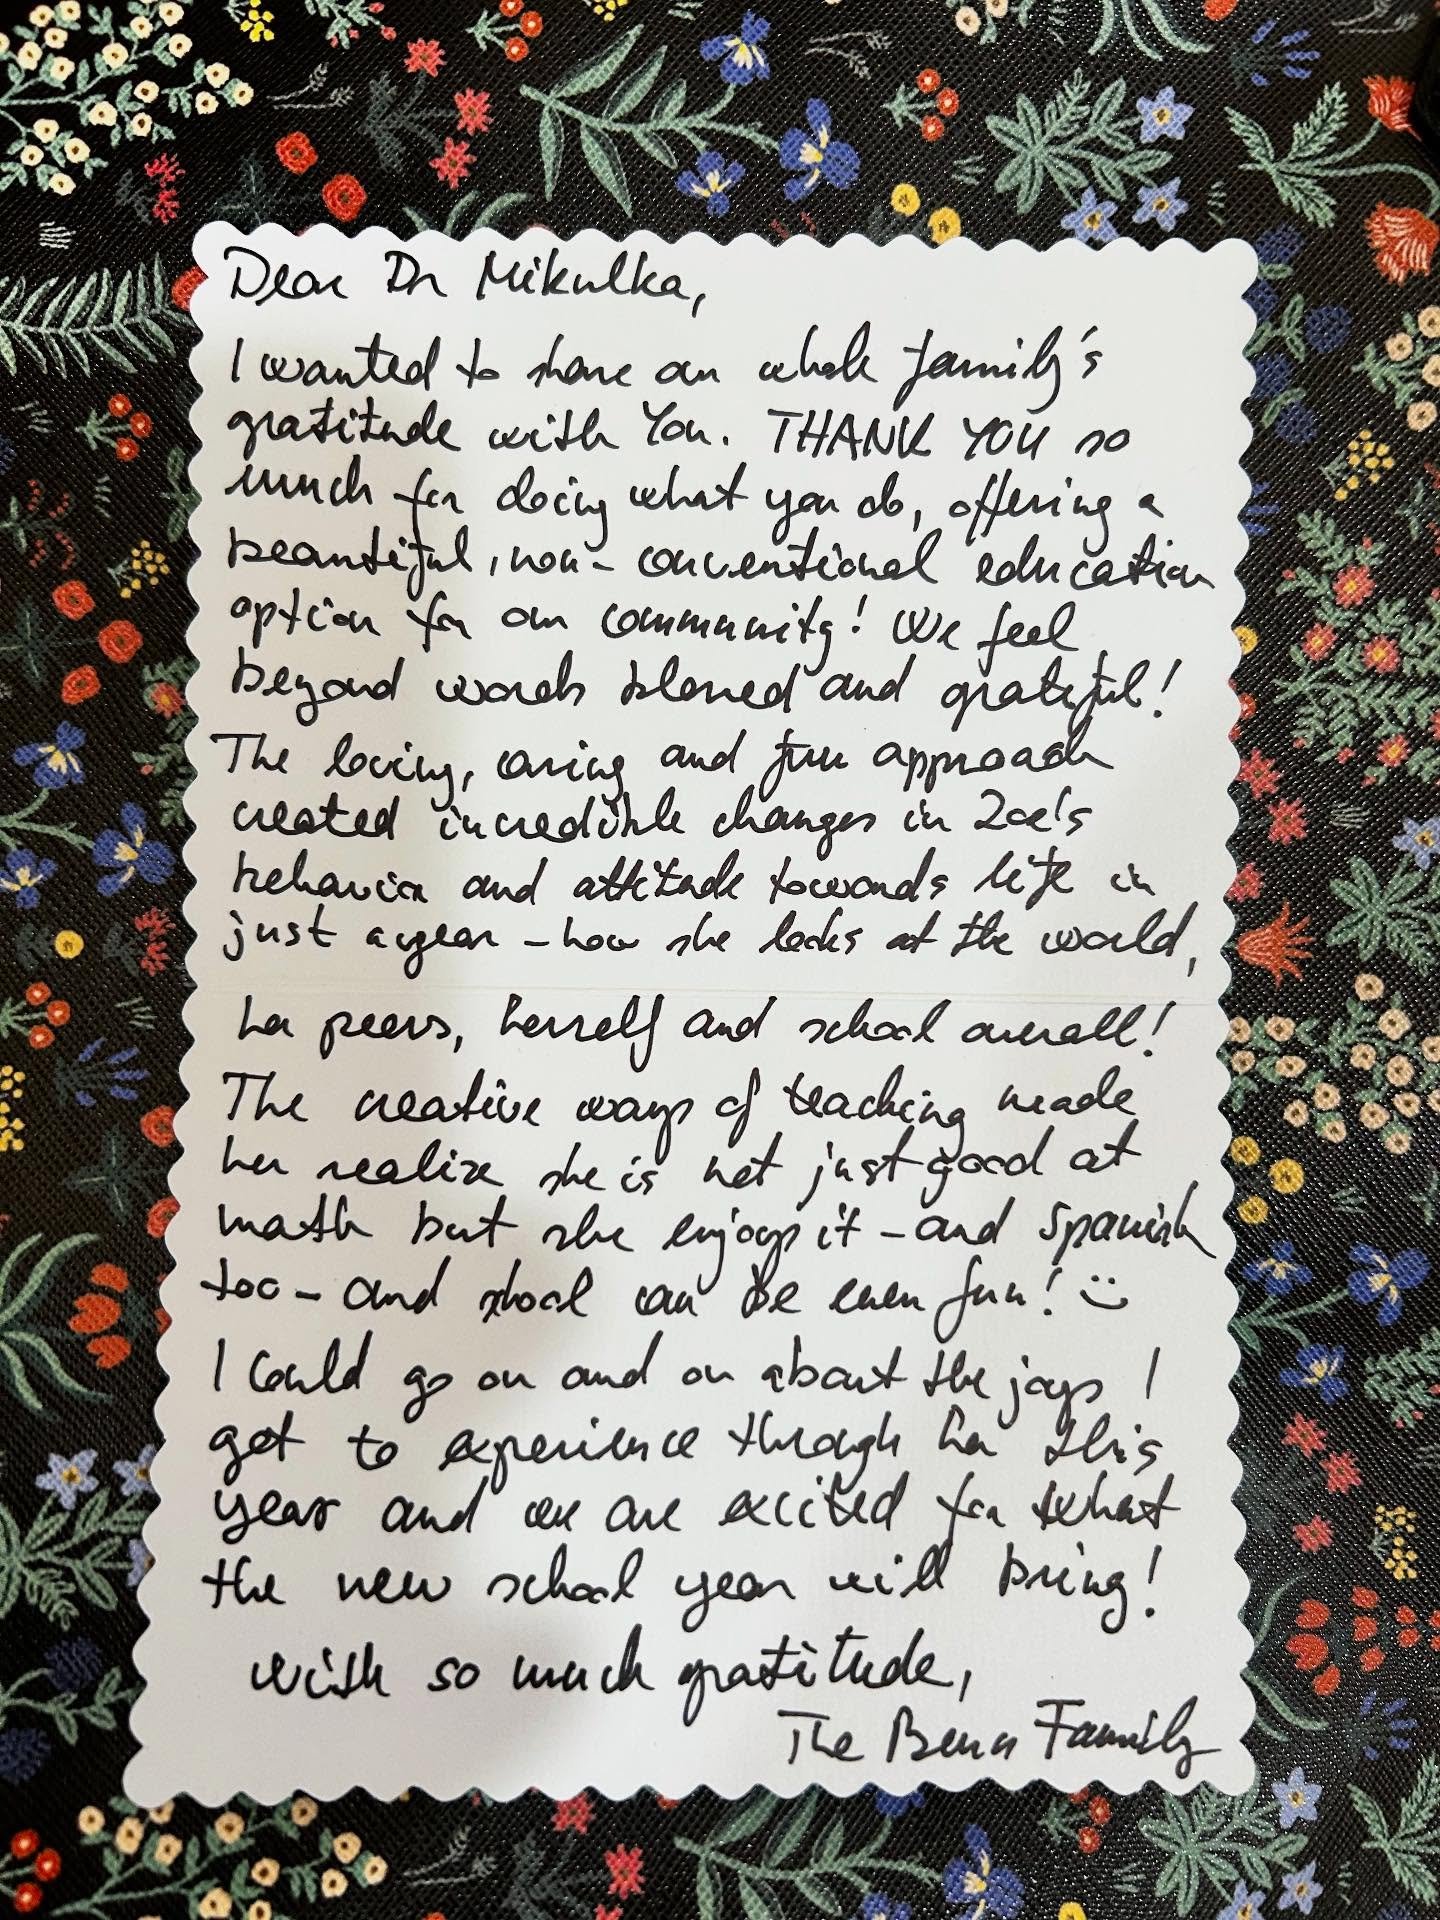 Dear Dr Mikulka,
I wanted to share our whole family's
gratitude with You. THANK YOU so
much for doing what you do, offering a
beautiful, non-conventional education
option for our community! We feel
beyond words blessed and grateful!
The loving, caring and fun approach
created incredible changes in Zoe's
behavior and attitude towards life in
just a year - how she looks at the world,
her peers, herself and school overall!
The creative ways of teaching made
her realize she is not just good at
math but she enjoys it - and Spanish
too - and school can be even fun! :)
I could go on and on about the joys I
got to experience through her this
year and we are excited for what
the new school year will bring!
With so much gratitude,
The Family